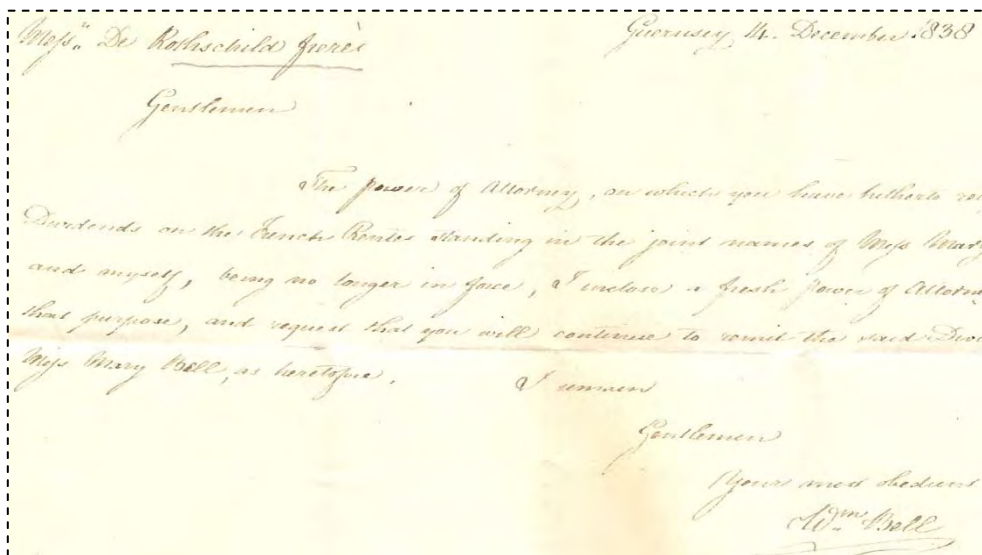 Messrs. De Rothschild frères
Guernsey 14. December 1838
Gentlemen
The power of Attorney, on which you have hitherto rec
Dividends on the French Rentes standing in the joint names of Miss Mary
and myself, being no longer in force, I inclose a fresh power of Attorne
that purpose, and request that you will continue to remit the said Divi
Miss Mary Bell, as heretofore.
I remain
Gentlemen
Your most obedient
Wm. Bell